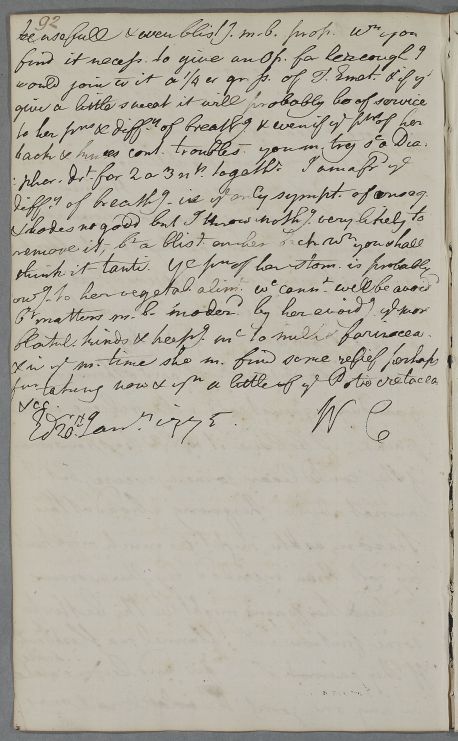 92
be usefull & even blistg. m.b. prop. Wn you
find it necess. to give an Op. for her cough I
would join to it a 1/4 a gr. ps. of T. Emet. & if yt
give a little sweat it will probably be of service
to her pns & diffty of breathg & even if ye pns of her
back & knees cont. troubles. you m. try st a Dia:
:phor. drt. for 2 or 3 nts togethr. I am afrd ye
diffty of breathg is ye only sympt. of
& bodes no good but I know nothg very likely to
remove it, bt a blistr. on her wn you shall
think it tanti. Ye pn of her stom. is probably
owg. to her vegetab. alimt. wc cannt. well be avoid
bt matters m. b. moderd by her avoidg ye mor
flatul. kinds & keepg. mc to milk & farinacea
& in ye m. time she m. find some relief perhaps
fm taking now & yn a little of ye Potio cretacea
&c.
Edr. 9 Janry 1775. W. C